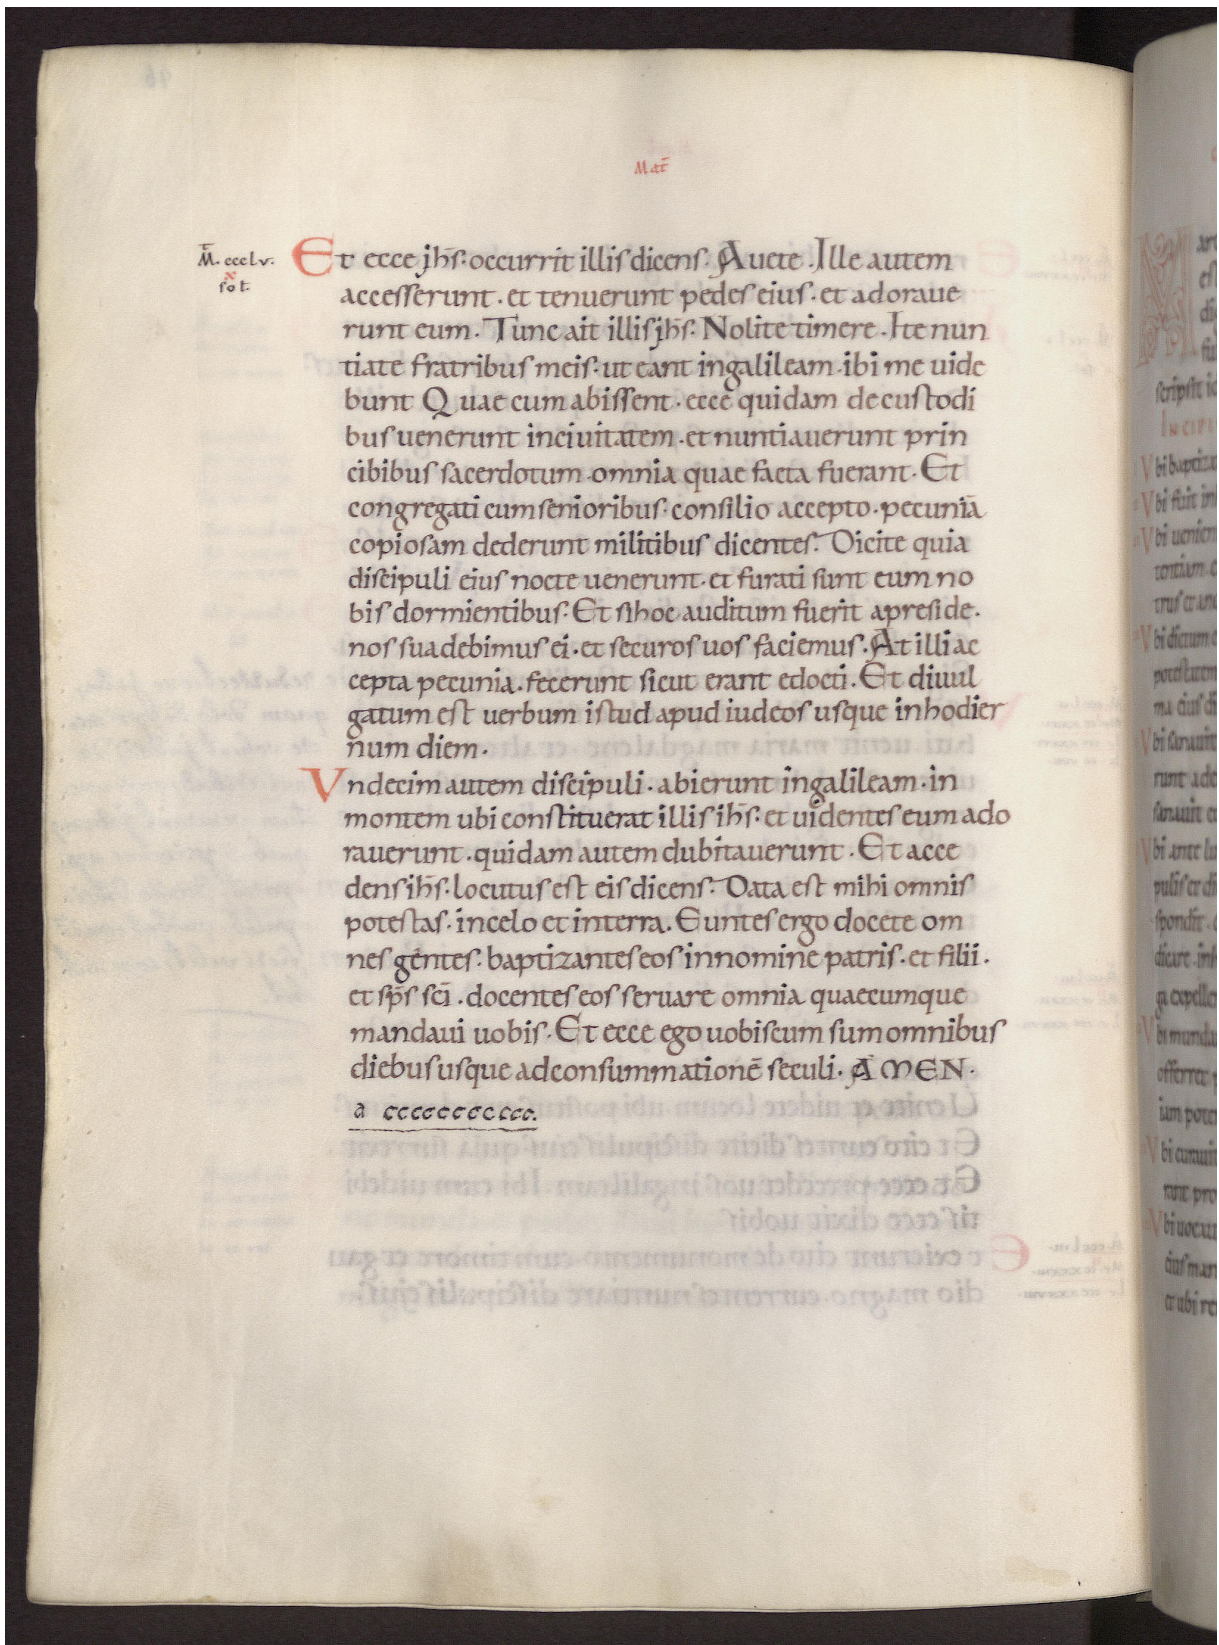 Mat̄
M̄. ccclv.
x
sol
Et ecce jh̄s· occurrit illis dicens· Auete· Ille autem
accesserunt· et tenuerunt pedes eius· et adoraue
runt eum· Tunc ait illis jh̄s· Nolite timere· Ite nun
tiate fratribus meis· ut eant ingalileam· ibi me uide
bunt Quae cum abissent· ecce quidam decustodi
bus uenerunt inciuitatem· et nuntiauerunt prin
cibibus sacerdotum· omnia quae facta fuerant· Et
congregati cum senioribus· consilio accepto· pecuniā
copiosam dederunt militibus dicentes· Dicite quia
discipuli eius nocte uenerunt· et furati sunt eum no
bis dormientibus· Et si hoc auditum fuerit apreside·
nos suadebimus ei· et securos uos faciemus· At illi ac
cepta pecunia· fecerunt sicut erant edocti· Et diuul
gatum est uerbum istud apud iudeos usque inhodier
num diem·
Vndecim autem discipuli· abierunt ingalileam· in
montem ubi constituerat illis ih̄s· et uidentes eum ado
rauerunt· quidam autem dubitauerunt· Et acce
dens ih̄s· locutus est eis dicens· Data est mihi omnis
potestas· incelo et interra. Euntes ergo docete om
nes gentes· baptizantes eos innomine patris· et filii·
et sp̄s sc̄i· docentes eos seruare omnia quaecumque
mandaui uobis· Et ecce ego uobiscum sum omnibus
diebus usque adconsummationē seculi· AMEN·
a ccccccccccc.